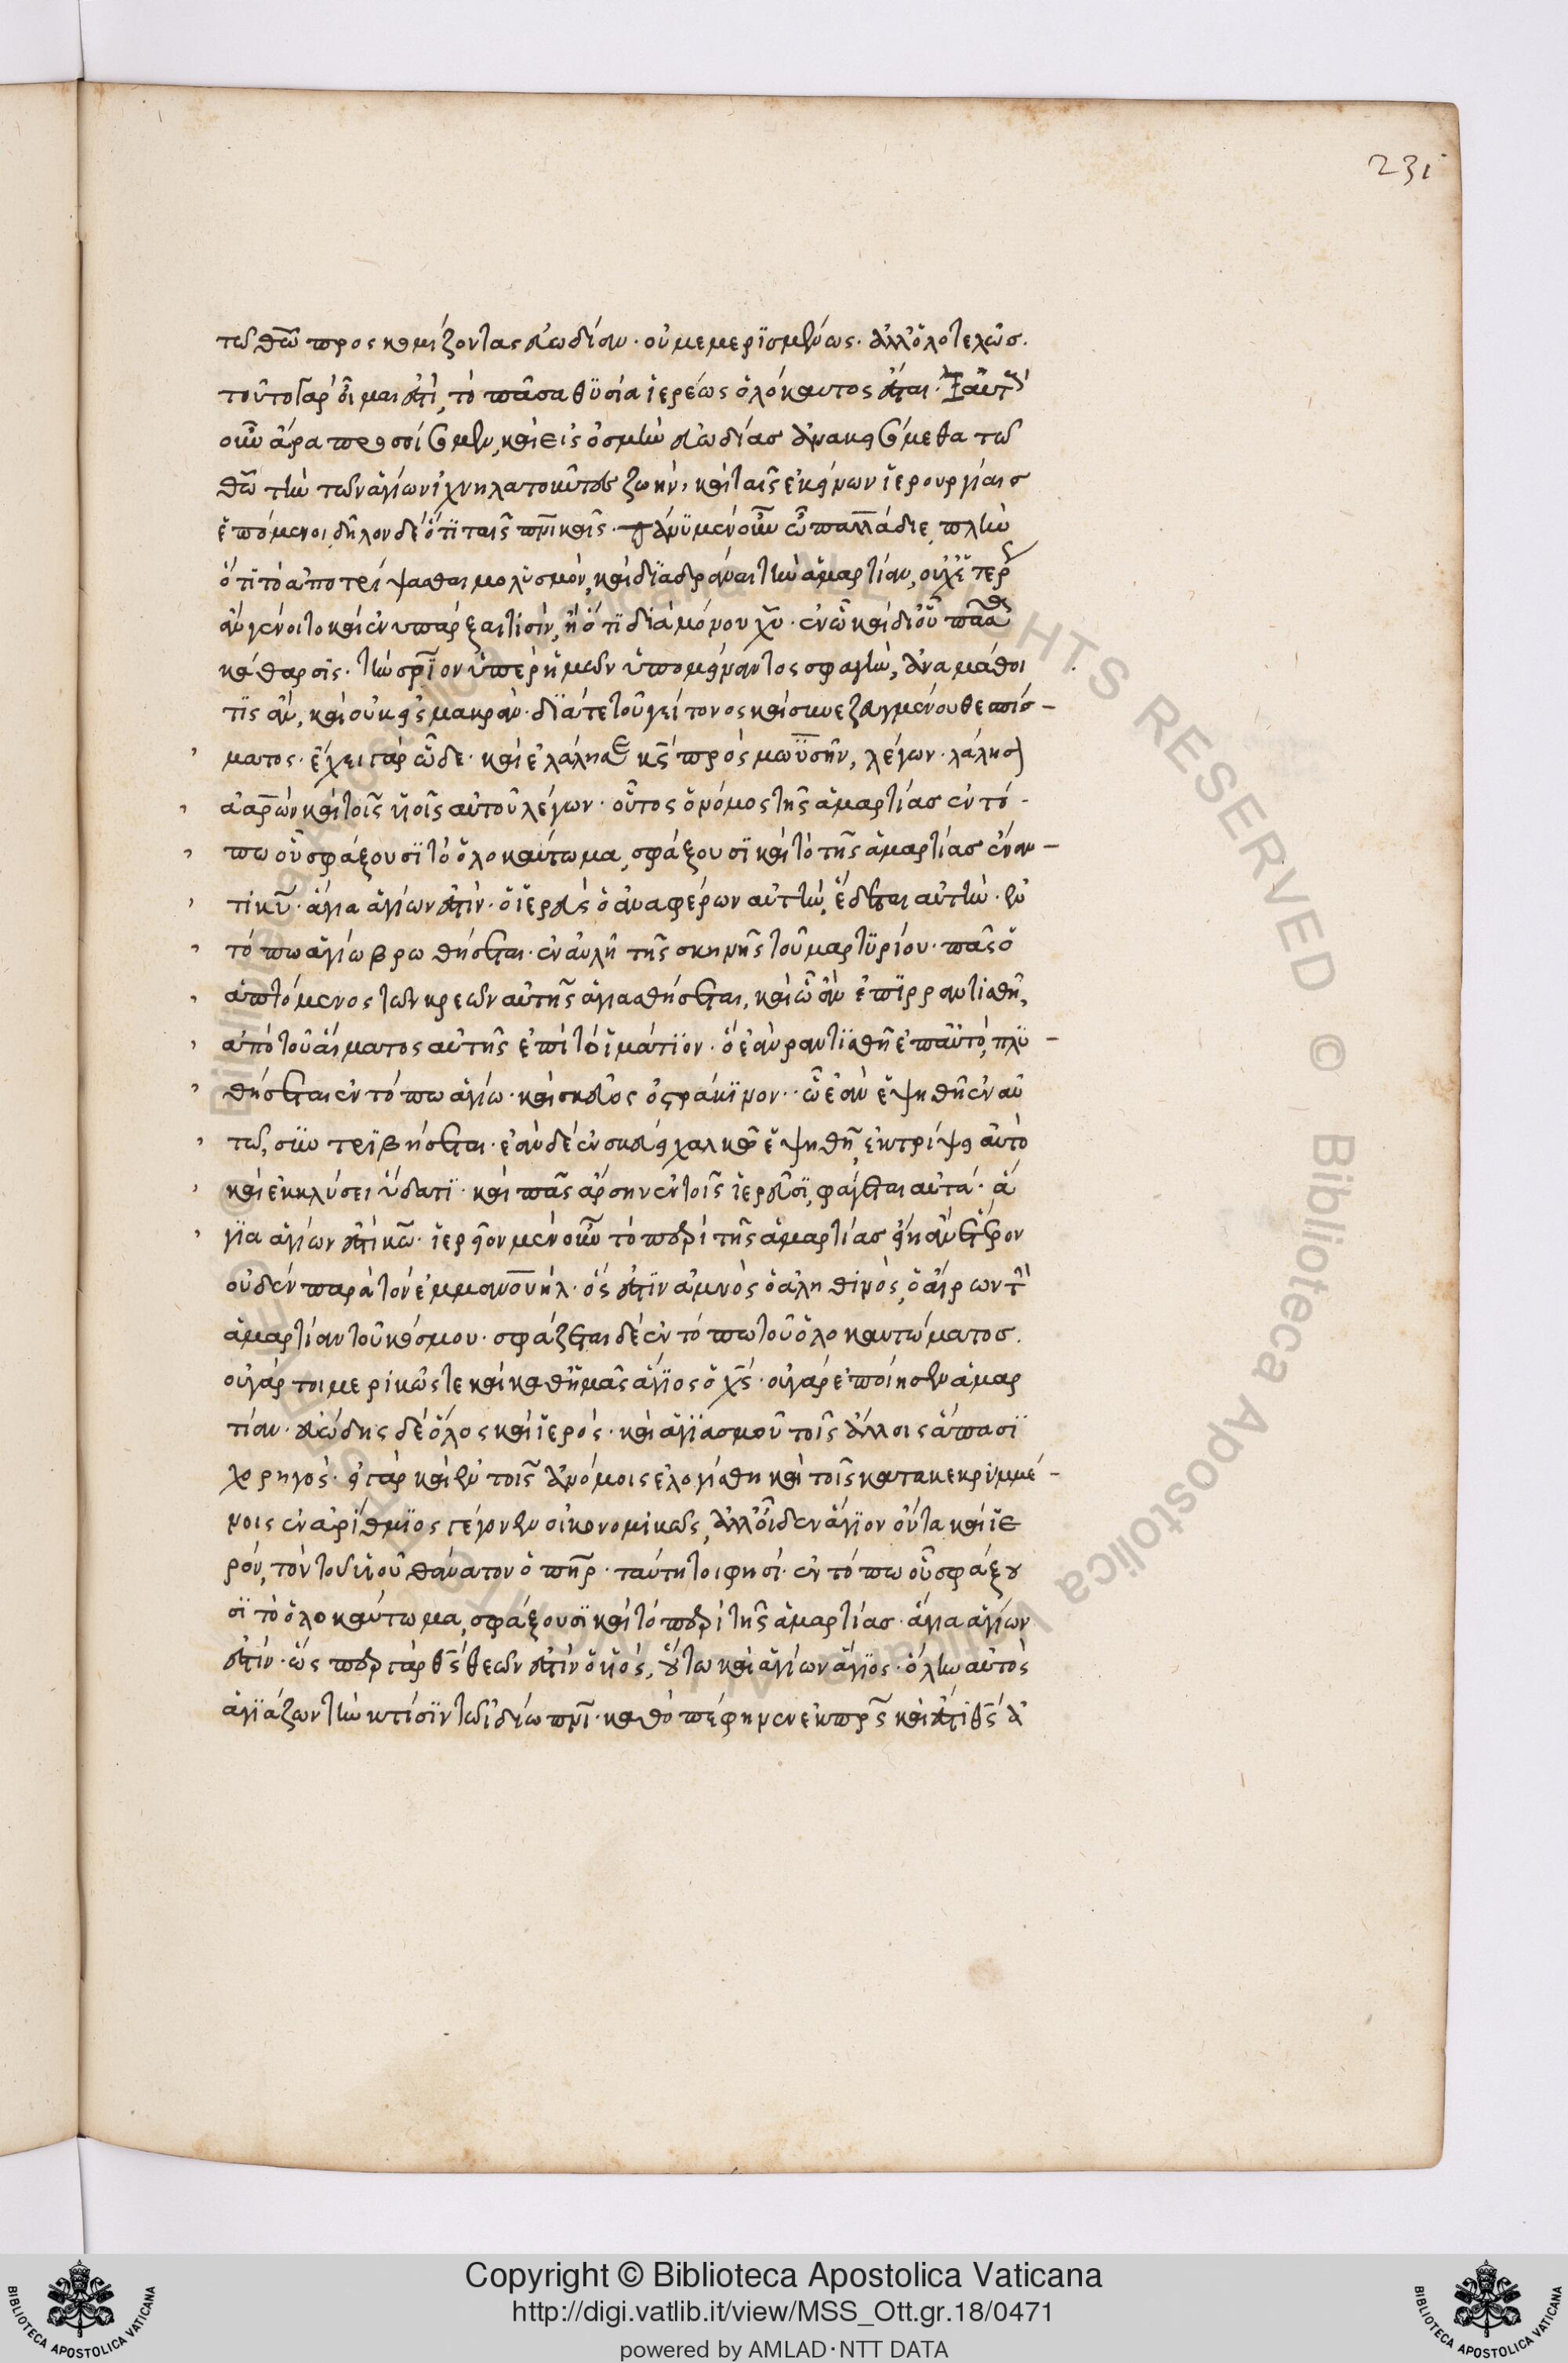 231
τῶ θ͞ω προσκομίζοντας εὐωδίαν· οὐ μεμερϊσμένως· ἀλλ' ὁλοτελῶσ.
τοῦτο γὰρ οἶμαι ἐστὶ, τὸ πᾶσα θϋσία ἱερέως ὁλόκαυτος ἔσται·
οὖν ἄρα προσοίσομεν, καὶ εἰς ὀσμὴν εὐωδίας ἀνακεισόμεθα τῶ
θ͞ω τὴν τῶν ἁγίων ἰχνηλατοῦντες ζωὴν, καὶ ταῖς ἐκείνων ἱερουργίαισ
ἑπόμενοι, δῆλον δὲ ὅτϊ ταῖς πν͞ικαῖς· μὲν οὖν ὦ παλλάδιε, πλὴν
ὅτι τὸ ἀποτρίψασθαι μολϋσμὸν, καὶ δϊαδρᾶναι τὴν ἁμαρτίαν, οὐχ ἑτέρως
ἂν γένοιτο καὶ ἐνυπάρξαι τισὶν, ἢ ὅτϊ διὰ μόνου χ͞υ· ἐν ὧ καὶ δι οὗ πᾶσα
κάθαρσϊς· τὴν σρ͞ϊον ὑπὲρ ἡμῶν ὑπομείναντος σφαγὴν, ἀναμάθοι
τϊς ἂν, καὶ οὐκ εἰς μακρὰν· δϊά τε τοῦ γείτονος καὶ συνεζευγμένου θεσπίσ-
ματος· ἔχει γὰρ ὧδε· καὶ ἐλάλησε κ͞ς πρὸς μωϋσῆν, λέγων· λάλησον
ἀαρὼν καὶ τοῖς υἱοῖς αὐτοῦ λέγων· οὗτος ὁ νόμος τῆς ἁμαρτίασ ἐν τό-
πω οὗ σφάξουσϊ τὸ ὁλοκαύτωμα, σφάξουσϊ καὶ τὸ τῆς ἁμαρτίασ ἐναν-
τι κ͞υ· ἅγια ἁγίων ἐστίν· ὁ ἱερεὺς ὁ ἀναφέρων αὐτὴν, ἔδεται αὐτὴν· ἐν
τόπω ἁγίω βρωθήσεται· ἐν αὐλῆ τῆς σκηνῆς τοῦ μαρτϋρίου· πᾶς ὁ
ἁπτόμενος τῶν κρεῶν αὐτῆς ἁγιασθήσεται, καὶ ὧ ἂν ἐπϊρραντισθῆ,
ἀπὸ τοῦ αἵματος αὐτῆς ἐπὶ τὸ ἱμάτϊον· ὃ ἐὰν ραντϊσθῆ ἐπ αὐτὸ, πλϋ-
θήσεται ἐν τόπω ἁγίω· καὶ σκεῦος ὀστράκϊνον· ὧ ἐὰν ἑψηθῆ ἐν αὐ
τῶ, συντρϊβήσεται· ἐὰν δὲ ἐν σκεύει χαλκῶ ἑψηθῆ, ἐκτρίψει αὐτὸ
καὶ ἐκκλύσει ὕδατϊ· καὶ πᾶς ἄρσην ἐν τοῖς ἱερεῦσϊ, φάγεται αὐτά· ἅ
γϊα ἁγίων ἐστὶ κ͞ω· ἱερεῖον μὲν οὖν τὸ περὶ τῆς ἁμαρτίασ εἴη ἂν ἕτερον
οὐδὲν παρὰ τὸν ἐμμανουὴλ· ὅς ἐστϊν ἀμνὸς ὁ ἀληθινὸς, ὁ αἴρων τὴν
ἁμαρτίαν τοῦ κόσμου· σφάζεται δὲ ἐν τόπω τοῦ ὁλοκαυτώματοσ.
οὐ γάρ τοι μερικῶς τε καὶ καθ ἡμᾶς ἅγϊος ὁ χ͞ς· οὐ γὰρ ἐποίησεν ἁμαρ
τίαν· εὐώδης δὲ ὅλος καὶ ἱερός· καὶ ἁγϊασμοῦ τοῖς ἄλλοις ἅπασϊ
χορηγός· εἰ γὰρ καὶ ἐν τοῖς ἀνόμοις ἐλογίσθη καὶ τοῖς κατακεκριμμέ-
νοις ἐναρίθμϊος γέγονεν οἰκονομικῶς, ἀλλ οἶδεν ἅγϊον ὄντα καὶ ἱε
ρὸν, τὸν τοῦ υἱοῦ θάνατον ὁ π͞ηρ· ταύτη τοι φησὶ· ἐν τόπω οὗ σφάξου
σϊ τὸ ὁλοκαύτωμα, σφάξουσϊ καὶ τὸ περὶ τῆς ἁμαρτίασ· ἅγια ἁγίων
ἐστίν· ὥς περ γὰρ θ͞ς θεῶν ἐστὶν ὁ υἱός, οὕτω καὶ ἁγίων ἅγϊος· ὅλην αὐτὸς
ἁγϊάζων τὴν κτίσϊν τῶ ἰδίω πν͞ι· καθὸ πέφηνεν ἐκ π͞ρς καὶ ἐστὶ θ͞ς ἀ
© Biblioteca Apostolica Vaticana ALL RIGHTS RESERVED © Biblioteca Apostolica Vaticana ALL RIGHTS RESERVED
Copyright © Biblioteca Apostolica Vaticana
http://digi.vatlib.it/view/MSS_Ott.gr.18/0471
powered by AMLAD·NTT DATA
BIBLIOTECA APOSTOLICA VATICANA
BIBLIOTECA APOSTOLICA VATICANA